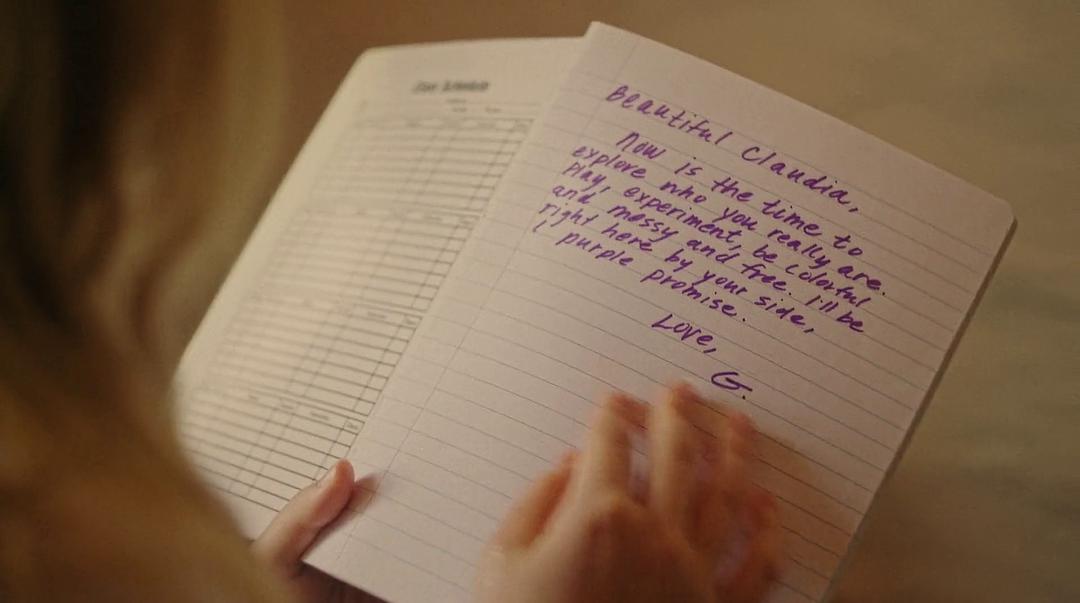 Schedule
Beautiful Claudia,
Now is the time to
explore who you really are.
Play, experiment, be colorful
and messy and free. I'll be
right here by your side,
I purple promise.
Love,
G.